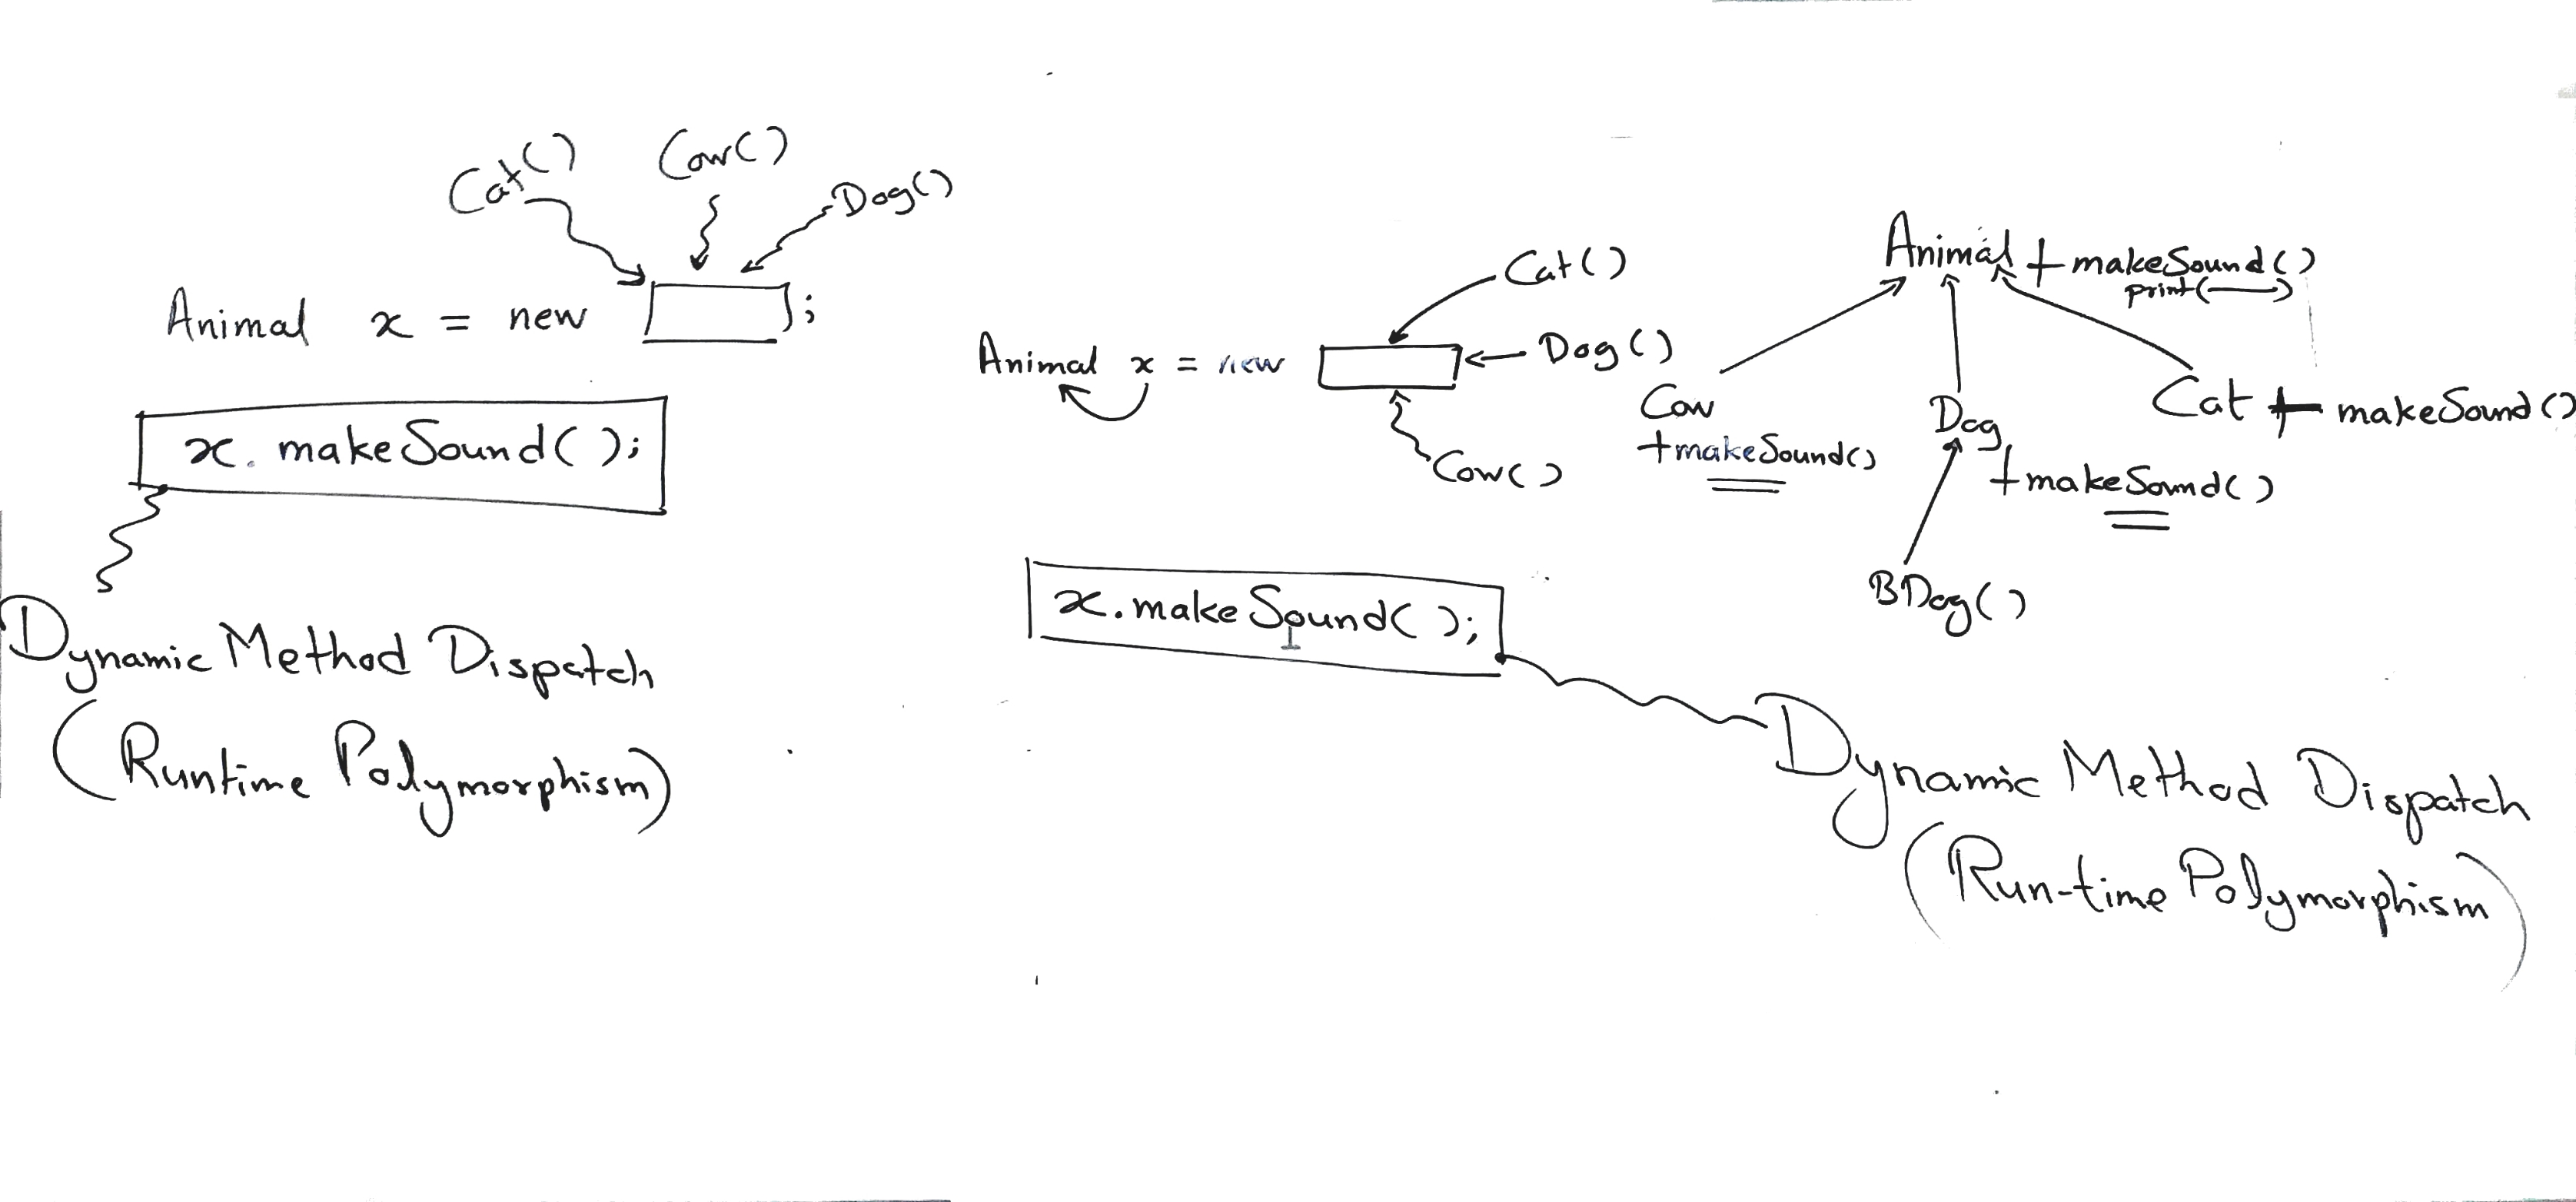 Cat() Cow() Dog()
Animal x = new ;
x. makeSound();
Dynamic Method Dispatch
(Runtime Polymorphism)
Cat()
Animal x = new Dog()
Cow()
x.makeSound();
Animal + makeSound()
print( )
Cow
+makeSound()
Dog
+makeSound()
Cat + makeSound()
BDog()
Dynamic Method Dispatch
(Run-time Polymorphism)